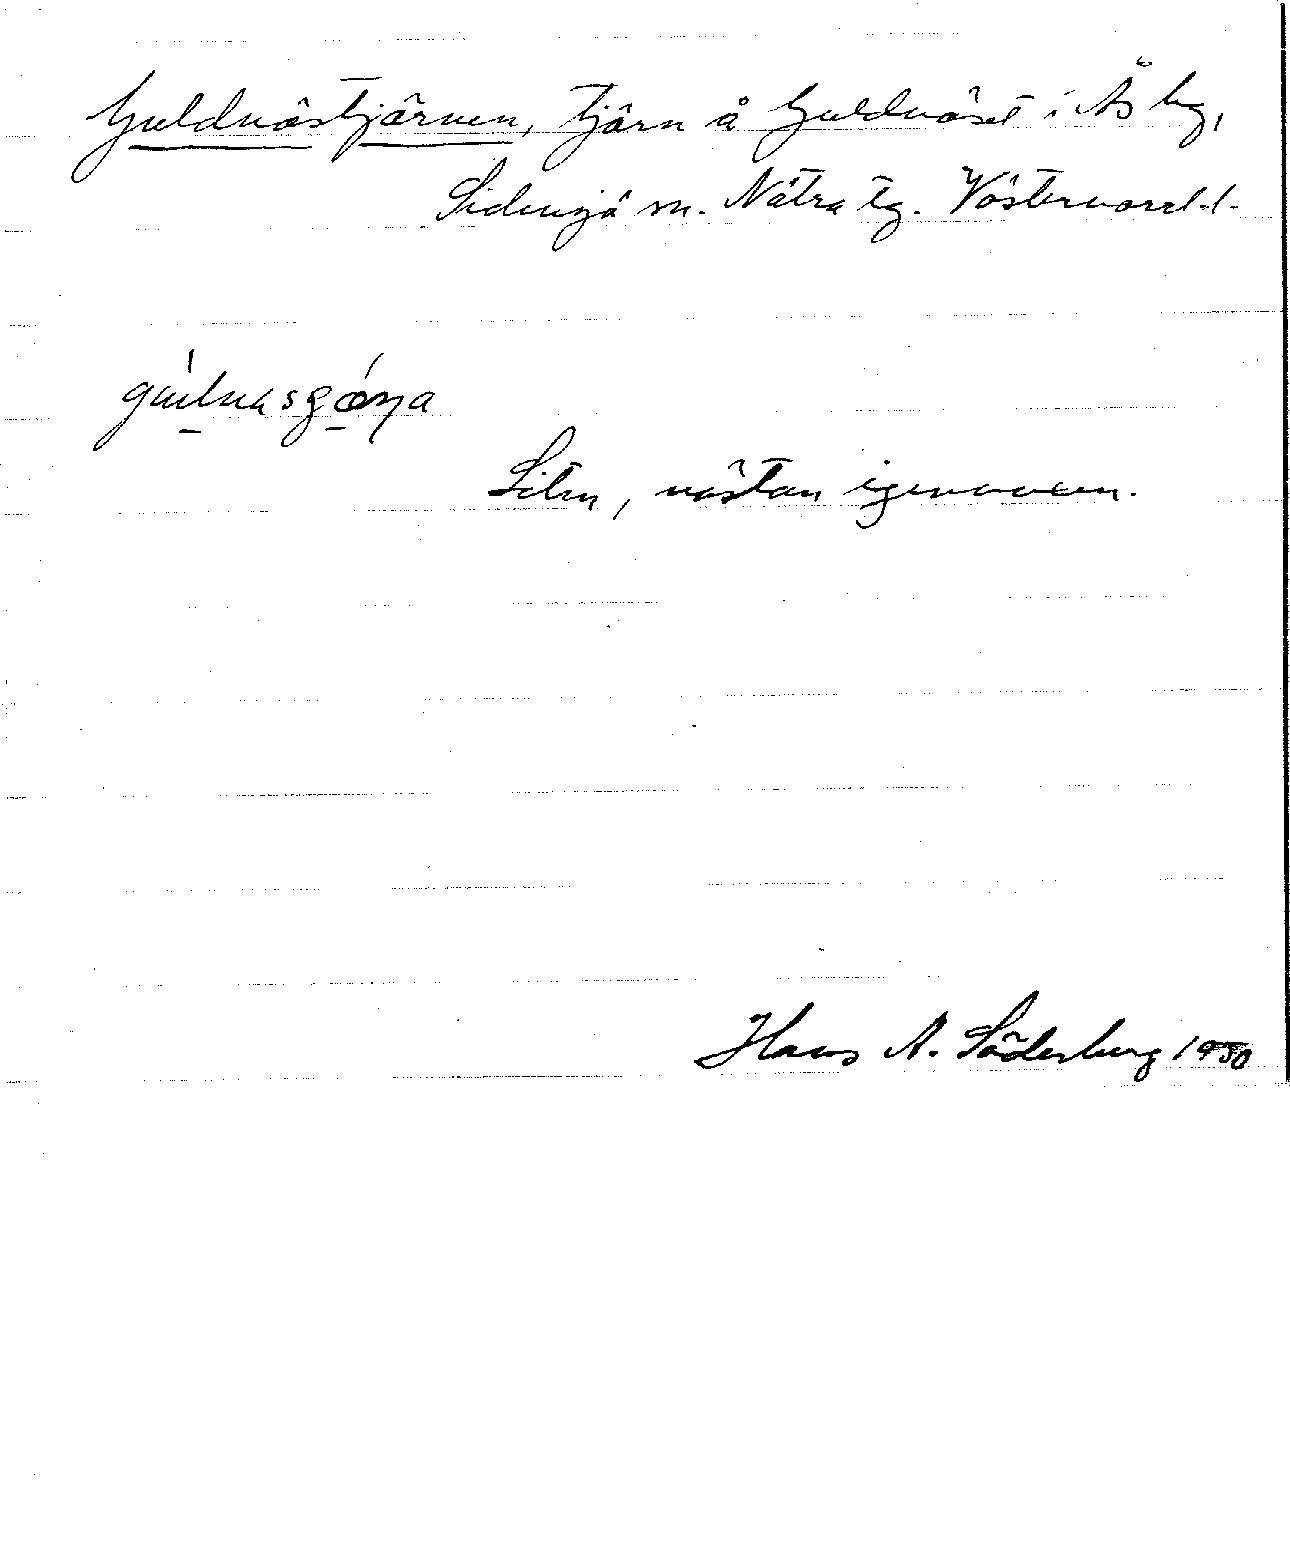 Guldnästjärnen, tjärn å Guldnäset i Ås by,
Sidensjö sn. Nätra tg. Västernorrl. l.
Liten, nästan igenvuxen.
Hans A. Söderberg 1950